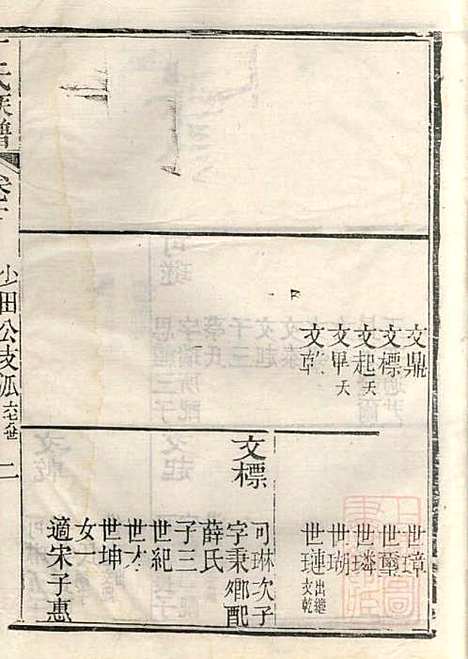 文鼎
文標
文起夭
文甲夭
文乾
世璋
世璽
世璘
世瑚
世璉出繼文乾
文標
可琳次子
字秉鄉配
薛氏
子三
世紀
世才
世坤
女一
適宋子惠
氏族譜
少田公支派
二